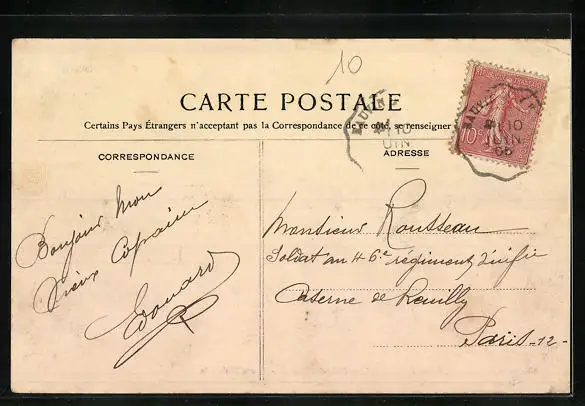 10
CARTE POSTALE
Certains Pays Étrangers n'acceptent pas la Correspondance de ce côté, se renseigner
CORRESPONDANCE
ADRESSE
10
JUIN
10c
10
JUIN
Bonjour mon
Vieux Copain
Edouard
Monsieur Rousseau
Soldat au 46e régiment d'inf
Caserne de Reuilly
Paris-12-